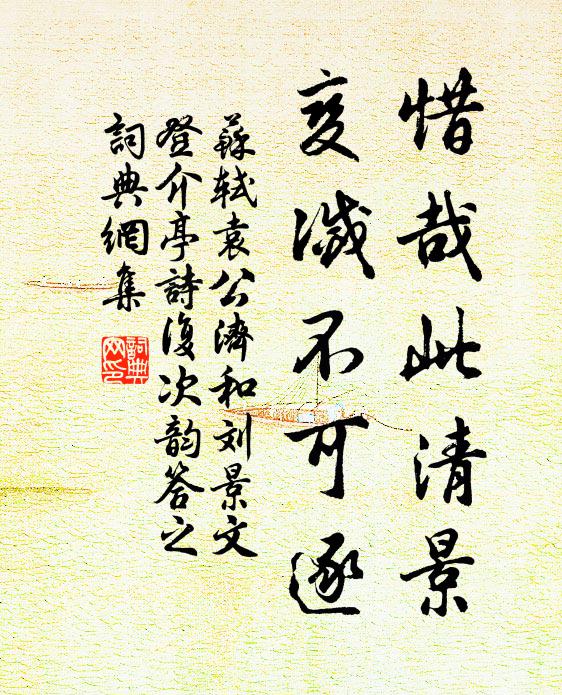 惜哉此清景
变滅不可逐
蘇軾袁公濟和刘景文
登介亭詩復次韵答之
詞典網集
詞典
网印